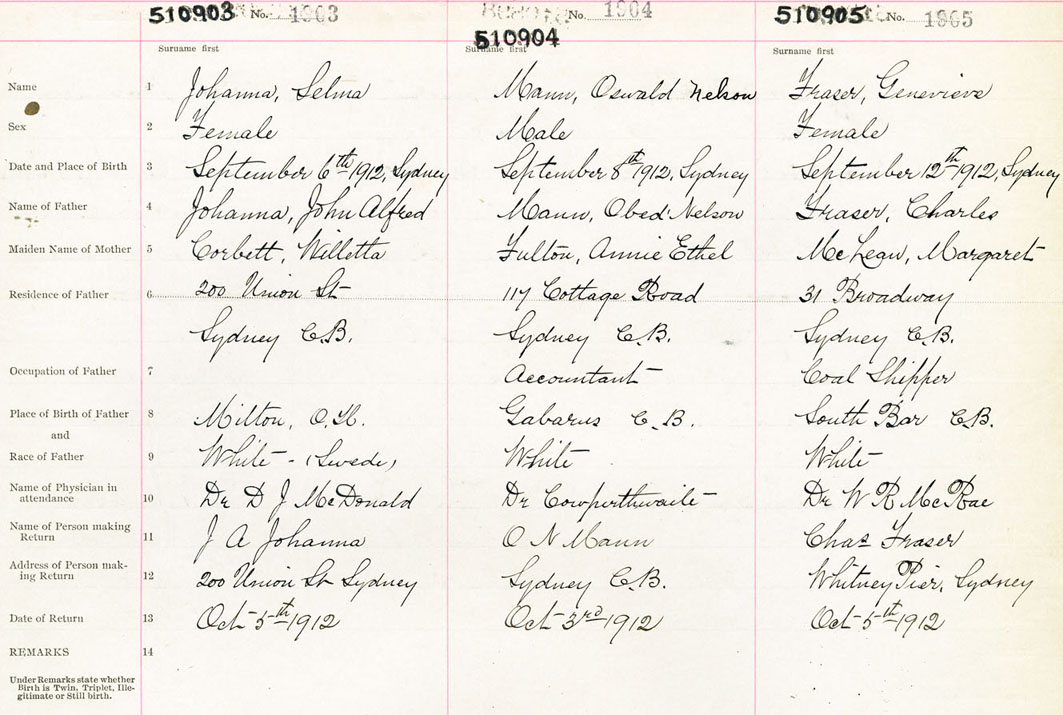 510903 No. 1903
No. 1904
510904
510905 No. 1905
Surname first Surname first Surname first
Name 1 Johanna, Selma Mann, Oswald Nelson Fraser, Genevieve
Sex 2 Female Male Female
Date and Place of Birth 3 September 6th 1912, Sydney September 8th 1912, Sydney September 12th 1912, Sydney
Name of Father 4 Johanna, John Alfred Mann, Obed Nelson Fraser, Charles
Maiden Name of Mother 5 Corbett, Willetta Fulton, Annie Ethel McLean, Margaret
Residence of Father 6 200 Union St 117 Cottage Road 31 Broadway
Sydney C.B. Sydney C.B. Sydney C.B.
Occupation of Father 7 Accountant Coal Shipper
Place of Birth of Father 8 Milton, Gabarus C.B. South Bar C.B.
and
Race of Father 9 White - (Swede) White White
Name of Physician in
attendance 10 Dr D J McDonald Dr Cowperthwaite Dr W R McRae
Name of Person making
Return 11 J A Johanna O N Mann Chas Fraser
Address of Person mak-
ing Return 12 200 Union St Sydney Sydney C.B. Whitney Pier, Sydney
Date of Return 13 Oct 5th 1912 Oct 3rd 1912 Oct 5th 1912
REMARKS 14
Under Remarks state whether
Birth is Twin, Triplet, Ille-
gitimate or Still birth.